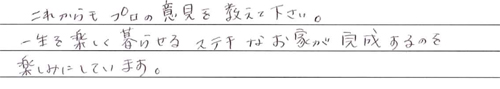 これからもプロの意見を教えて下さい。
一生を楽しく暮らせるステキなお家が完成するのを
楽しみにしています。